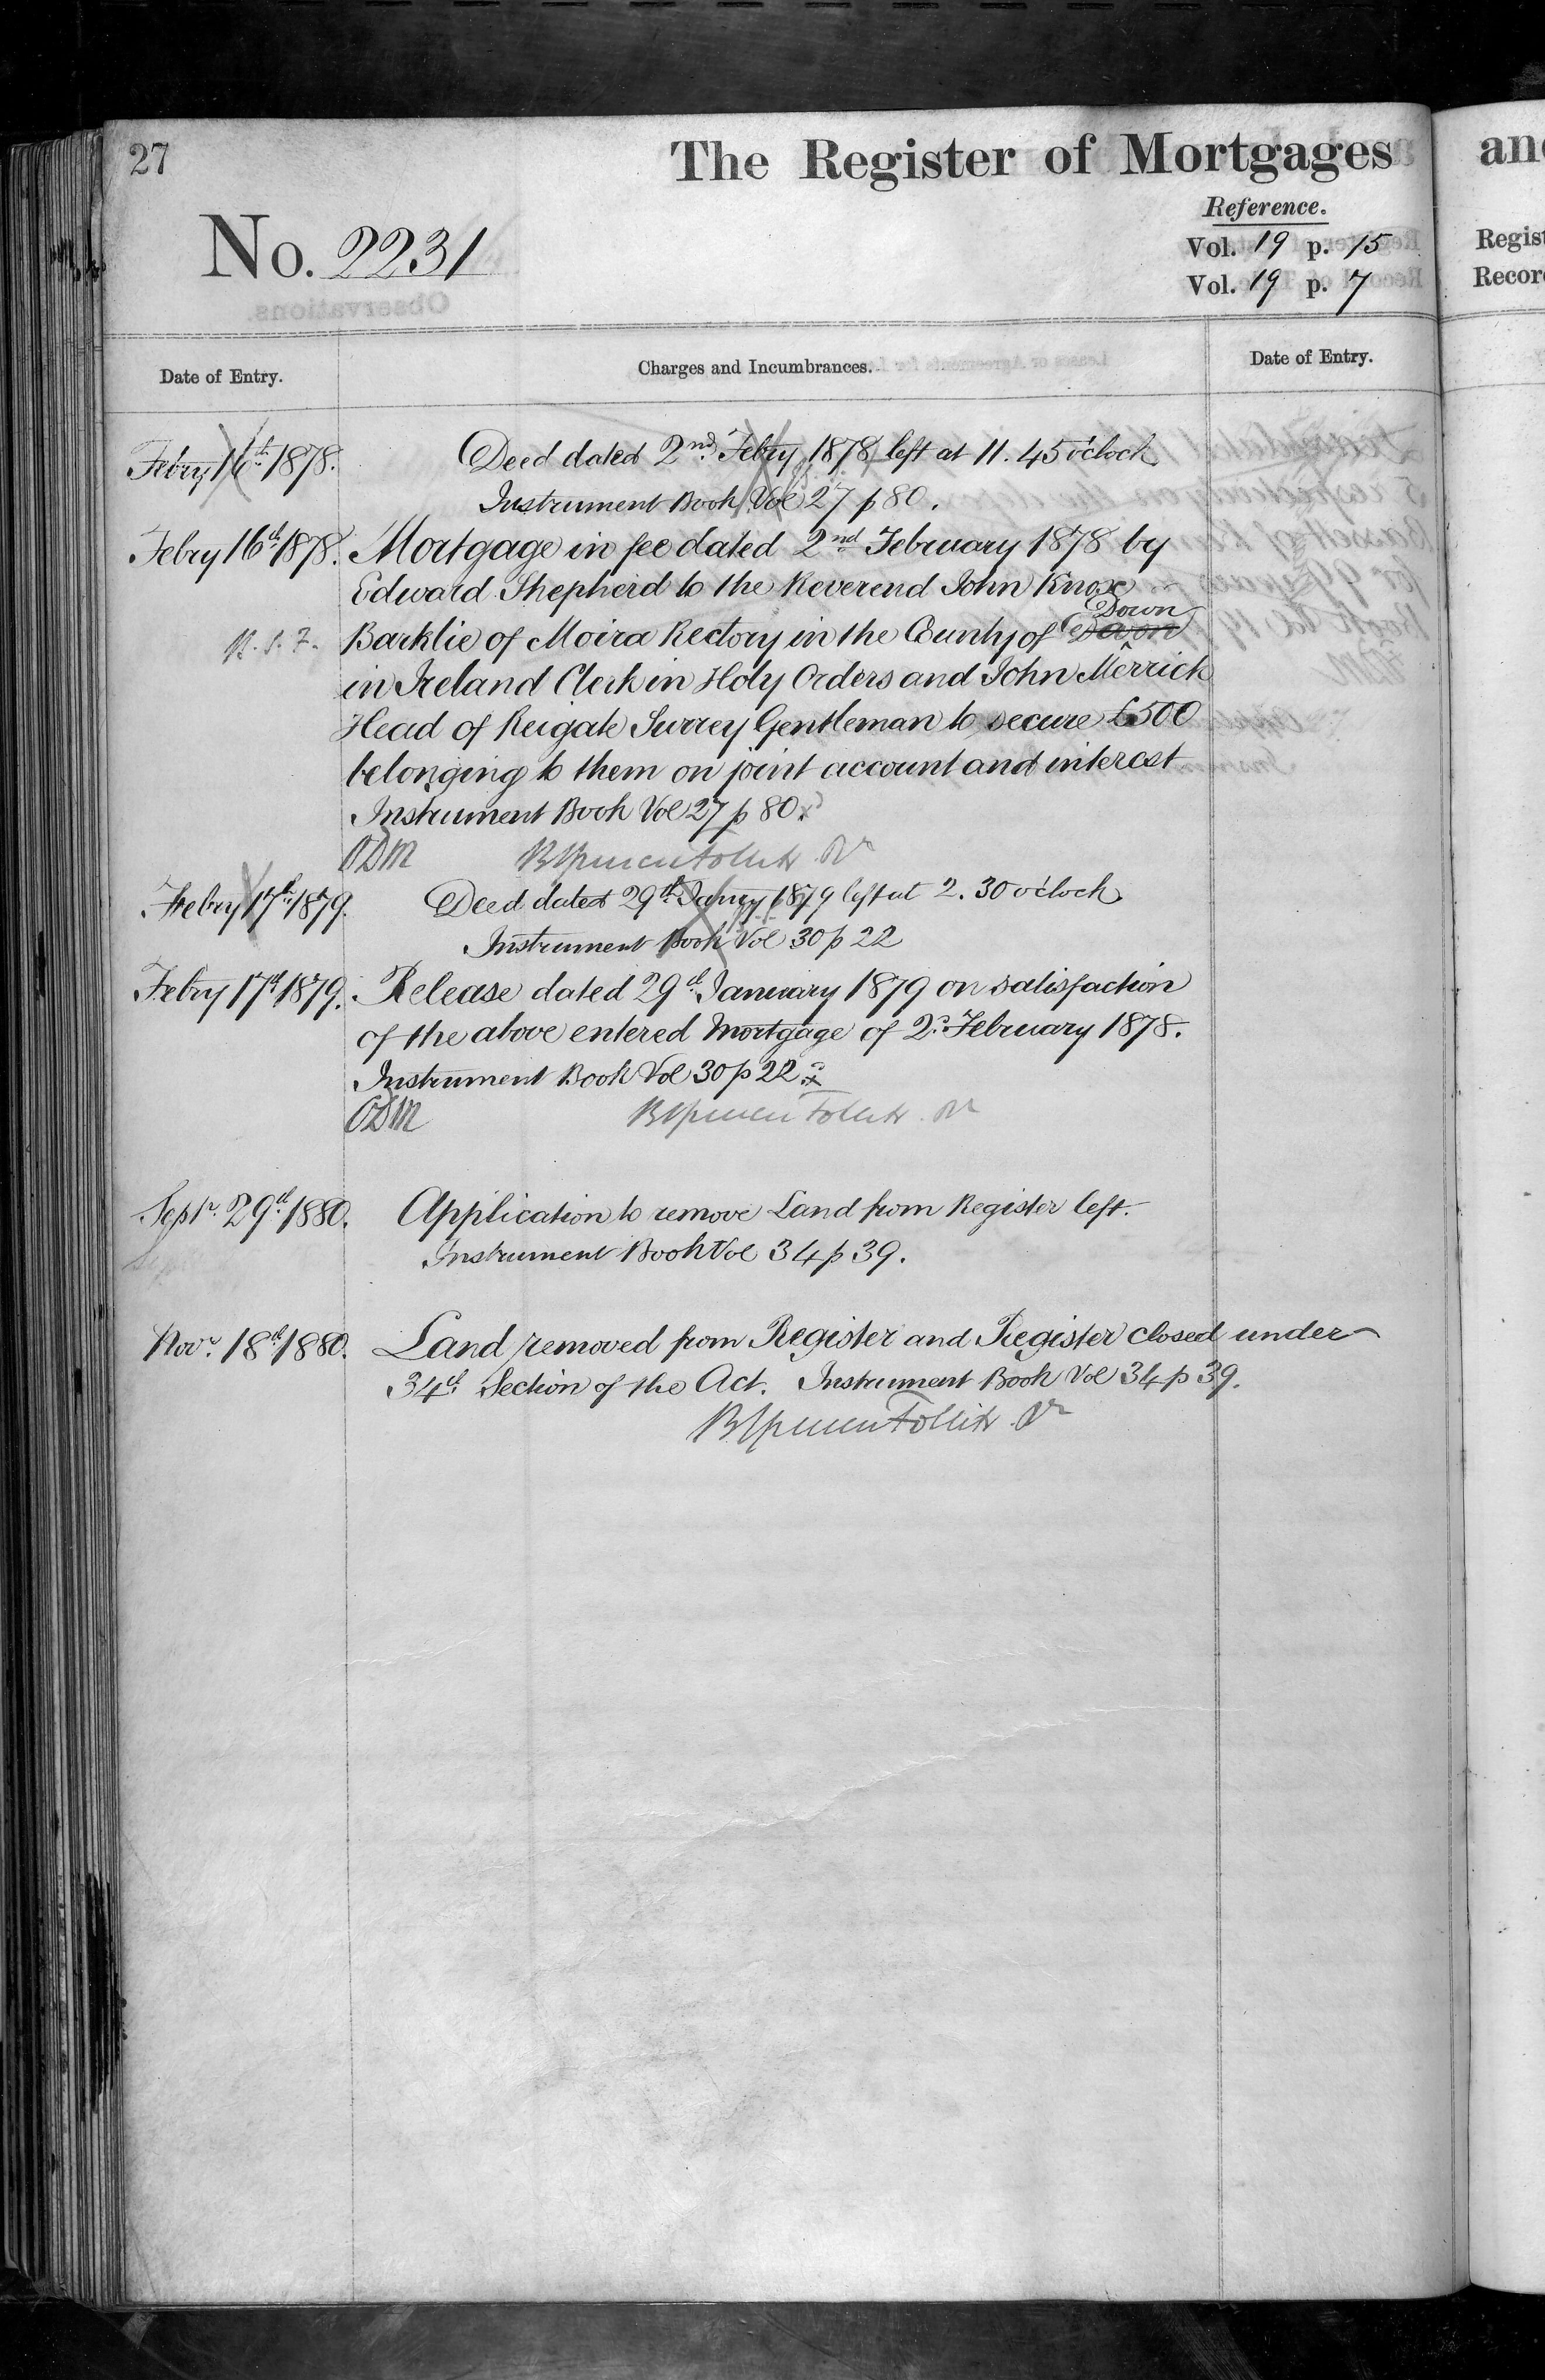 27
The Register of Mortgages
Reference.
No. 2231
Vol. 19 p. 15
Vol. 19 p. 7
Date of Entry.
Charges and Incumbrances.
Date of Entry.
Febry 16th 1878. Deed dated 2nd Febry 1878 left at 11.45 o'clock
Instrument Book Vol 27 p 80.
Febry 16th 1878. Mortgage in fee dated 2nd February 1878 by
Edward Shepherd to the Reverend John Knox
Down
Barklie of Moira Rectory in the County of Devon
in Ireland Clerk in Holy Orders and John Merrick
Head of Reigate Surrey Gentleman to secure £500
belonging to them on joint account and interest
Instrument Book Vol 27 p 80.
ODM
Febry 17th 1879. Deed dated 29th Janry 1879 left at 2.30 o'clock
Instrument Book Vol 30 p 22
Febry 17th 1879. Release dated 29th January 1879 on satisfaction
of the above entered Mortgage of 2d February 1878.
Instrument Book Vol 30 p 22
ODM
Septr. 29th 1880. Application to remove Land from Register left.
Instrument Book Vol 34 p 39.
Novr. 18th 1880. Land removed from Register and Register closed under
34th Section of the Act. Instrument Book Vol 34 p 39.
an
Regist
Recor